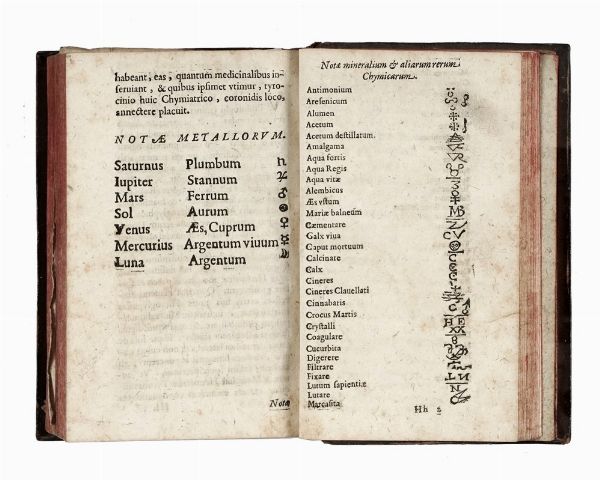 habeant, eas, quantum medicinalibus in-
seruiant, & quibus ipsimet vtimur, tyro-
cinio huic Chymiatrico, coronidis loco,
annectere placuit.
NOTÆ METALLORVM.
Saturnus Plumbum ♄
Iupiter Stannum ♃
Mars Ferrum ♂
Sol Aurum ☉
Venus Æs, Cuprum ♀
Mercurius Argentum viuum ☿
Luna Argentum
Notæ
Notæ mineralium & aliarum rerum
Chymicarum.
Antimonium
Aresenicum
Alumen
Acetum
Acetum destillatum.
Amalgama
Aqua fortis
Aqua Regis
Aqua vitæ
Alembicus
Æs vstum
Mariæ balneum MB
Cæmentare
Calx viua
Caput mortuum
Calcinare
Calx
Cineres
Cineres Clauellati
Cinnabaris
Crocus Martis
Crystalli
Coagulare
Cucurbita
Digerere
Filtrare
Fixare
Lutum sapientiæ
Lutare
Marcasita
Hh 2